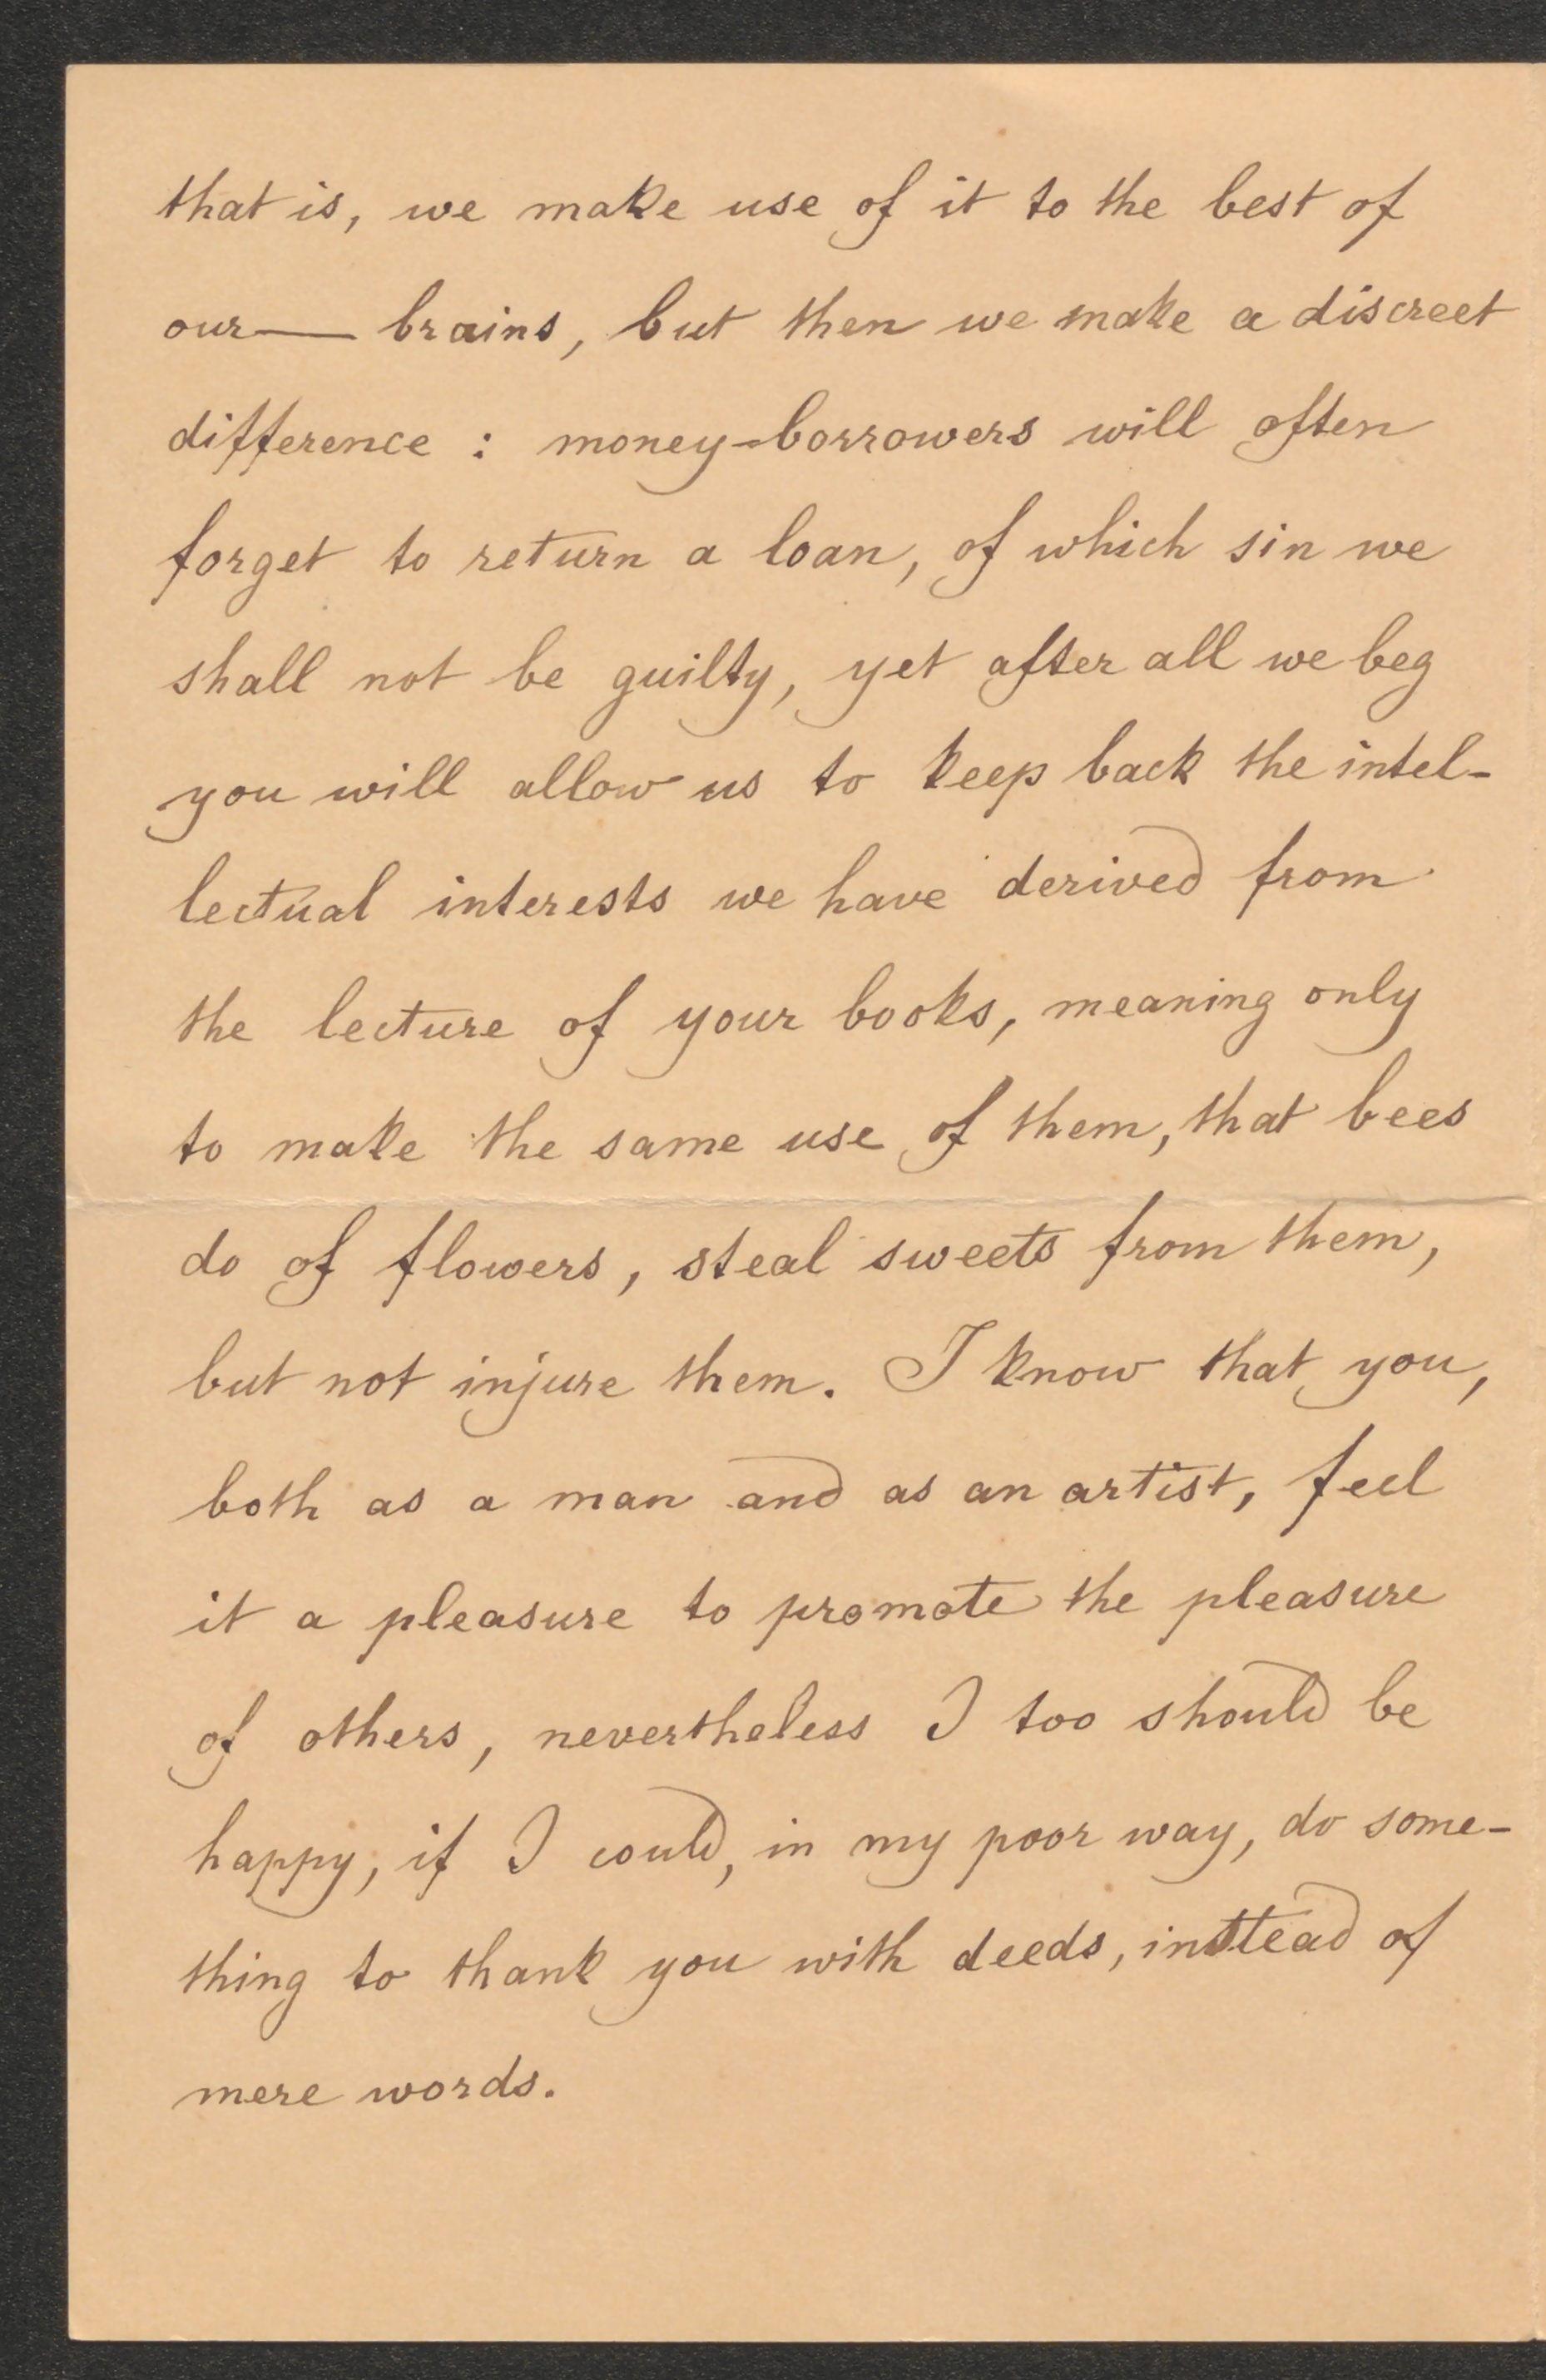 that is, we make use of it to the best of
our — brains, but then we make a discreet
difference : money-borrowers will often
forget to return a loan, of which sin we
shall not be guilty, yet after all we beg
you will allow us to keep back the intel-
lectual interests we have derived from
the lecture of your books, meaning only
to make the same use of them, that bees
do of flowers, steal sweets from them,
but not injure them. I know that you,
both as a man and as an artist, feel
it a pleasure to promote the pleasure
of others, nevertheless I too should be
happy, if I could, in my poor way, do some-
thing to thank you with deeds, instead of
mere words.